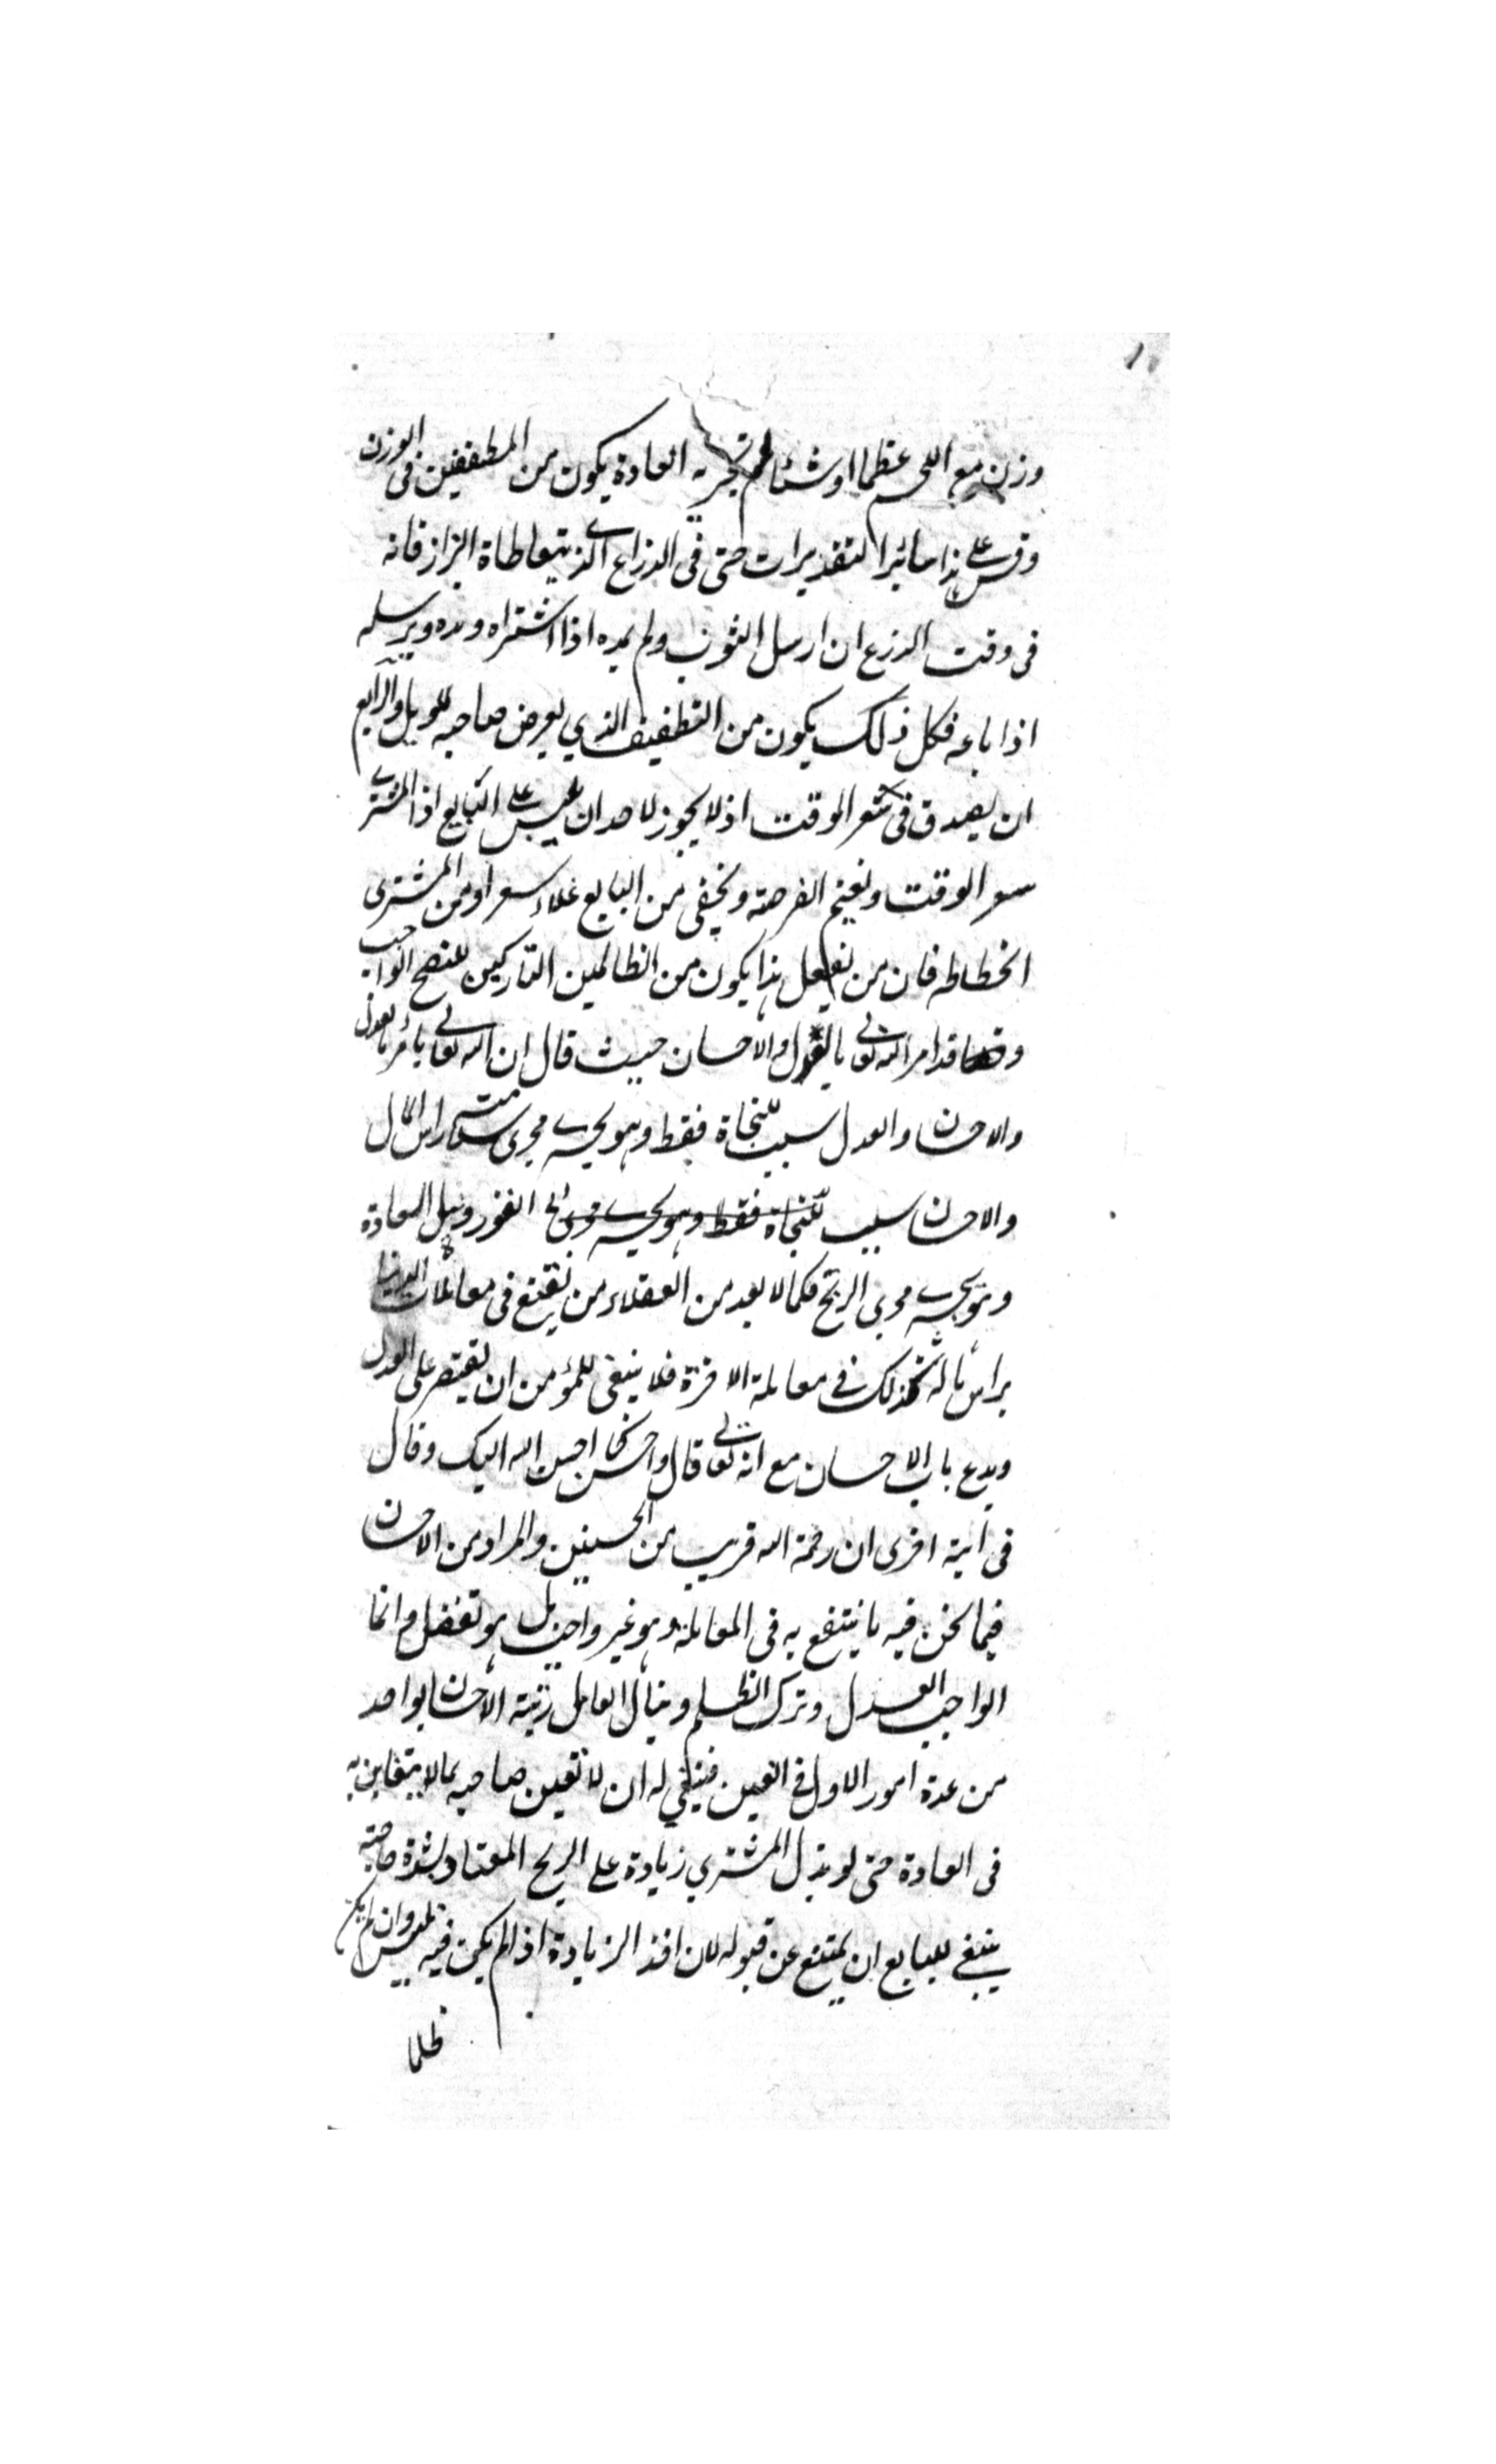 وزن مع اللحم عظما او شيئا لم تجر به العادة يكون من المطففين فى الوزن
وقس على هذا سائر التقديرات حتى فى الذراع الذي يتعاطاه البزاز فانه
فى وقت الذرع ان ارسل الثوب ولم يمده اذا اشتراه ومده ويرسله
اذا باعه فكل ذلك يكون من التطفيف الذي يعرض صاحبه للويل والرابع
ان يصدق فى سعر الوقت اذ لا يجوز لاحد ان يلبس على البايع اذ المشترى
سعر الوقت ويغتنم الفرصة ويخفى من البايع غلاء سعر او من المشترى
انحطاطه فان من يفعل هذا يكون من الظالمين التاركين للنصح الواجب
وقد امر الله تعالى بالعدل والاحسان حيث قال ان الله تعالى يأمر بالعدل
والاحسان والعدل سبب للنجاة فقط وهو يجرى مجرى سلامة راس المال
والاحسان سبب للنجاة فقط وهو يجرى مجرى الفوز ونيل السعادة
وهو يجرى مجرى الربح فكما لا يعد من العقلاء من يقنع فى معاملات الدنيا
براس ماله فكذلك فى معاملة الاخرة فلا ينبغى للمؤمن ان يقتصر على العدل
ويدع باب الاحسان مع انه تعالى قال واحسن كما احسن الله اليك وقال
فى اية اخرى ان رحمة الله قريب من المحسنين والمراد من الاحسان
فيما نحن فيه ما ينتفع به فى المعاملة وهو غير واجب بل هو تفضل وانما
الواجب العدل وترك الظلم وينال العامل رتبة الاحسان بواحد
من عدة امور الاول فى الغبن فينبغي له ان لا يغبن صاحبه بما لا يتغابن به
فى العادة حتى لو بذل المشتري زيادة على الربح المعتاد لشدة حاجته
ينبغى للبايع ان يمتنع عن قبوله لان اخذ الزيادة اذا لم يكن فيه تلبيس وان لم يكن
ظلما